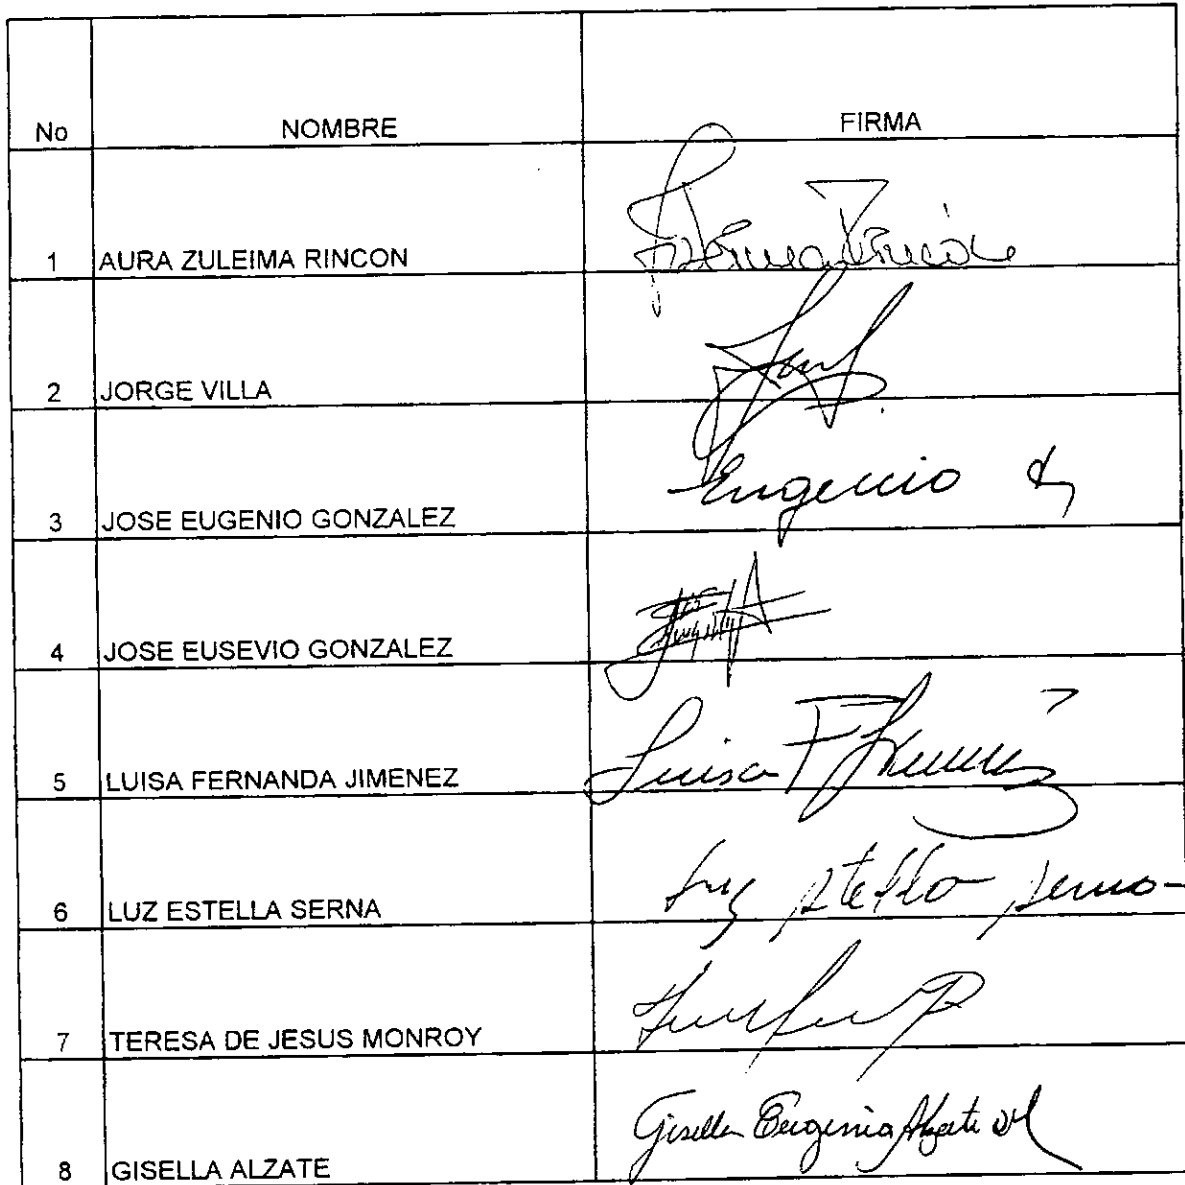 No NOMBRE FIRMA
1 AURA ZULEIMA RINCON
2 JORGE VILLA
3 JOSE EUGENIO GONZALEZ Eugenio
4 JOSE EUSEVIO GONZALEZ
5 LUISA FERNANDA JIMENEZ Luisa F Jimenez
6 LUZ ESTELLA SERNA Luz Stella Serna
7 TERESA DE JESUS MONROY
8 GISELLA ALZATE Gisella Eugenia Alzate